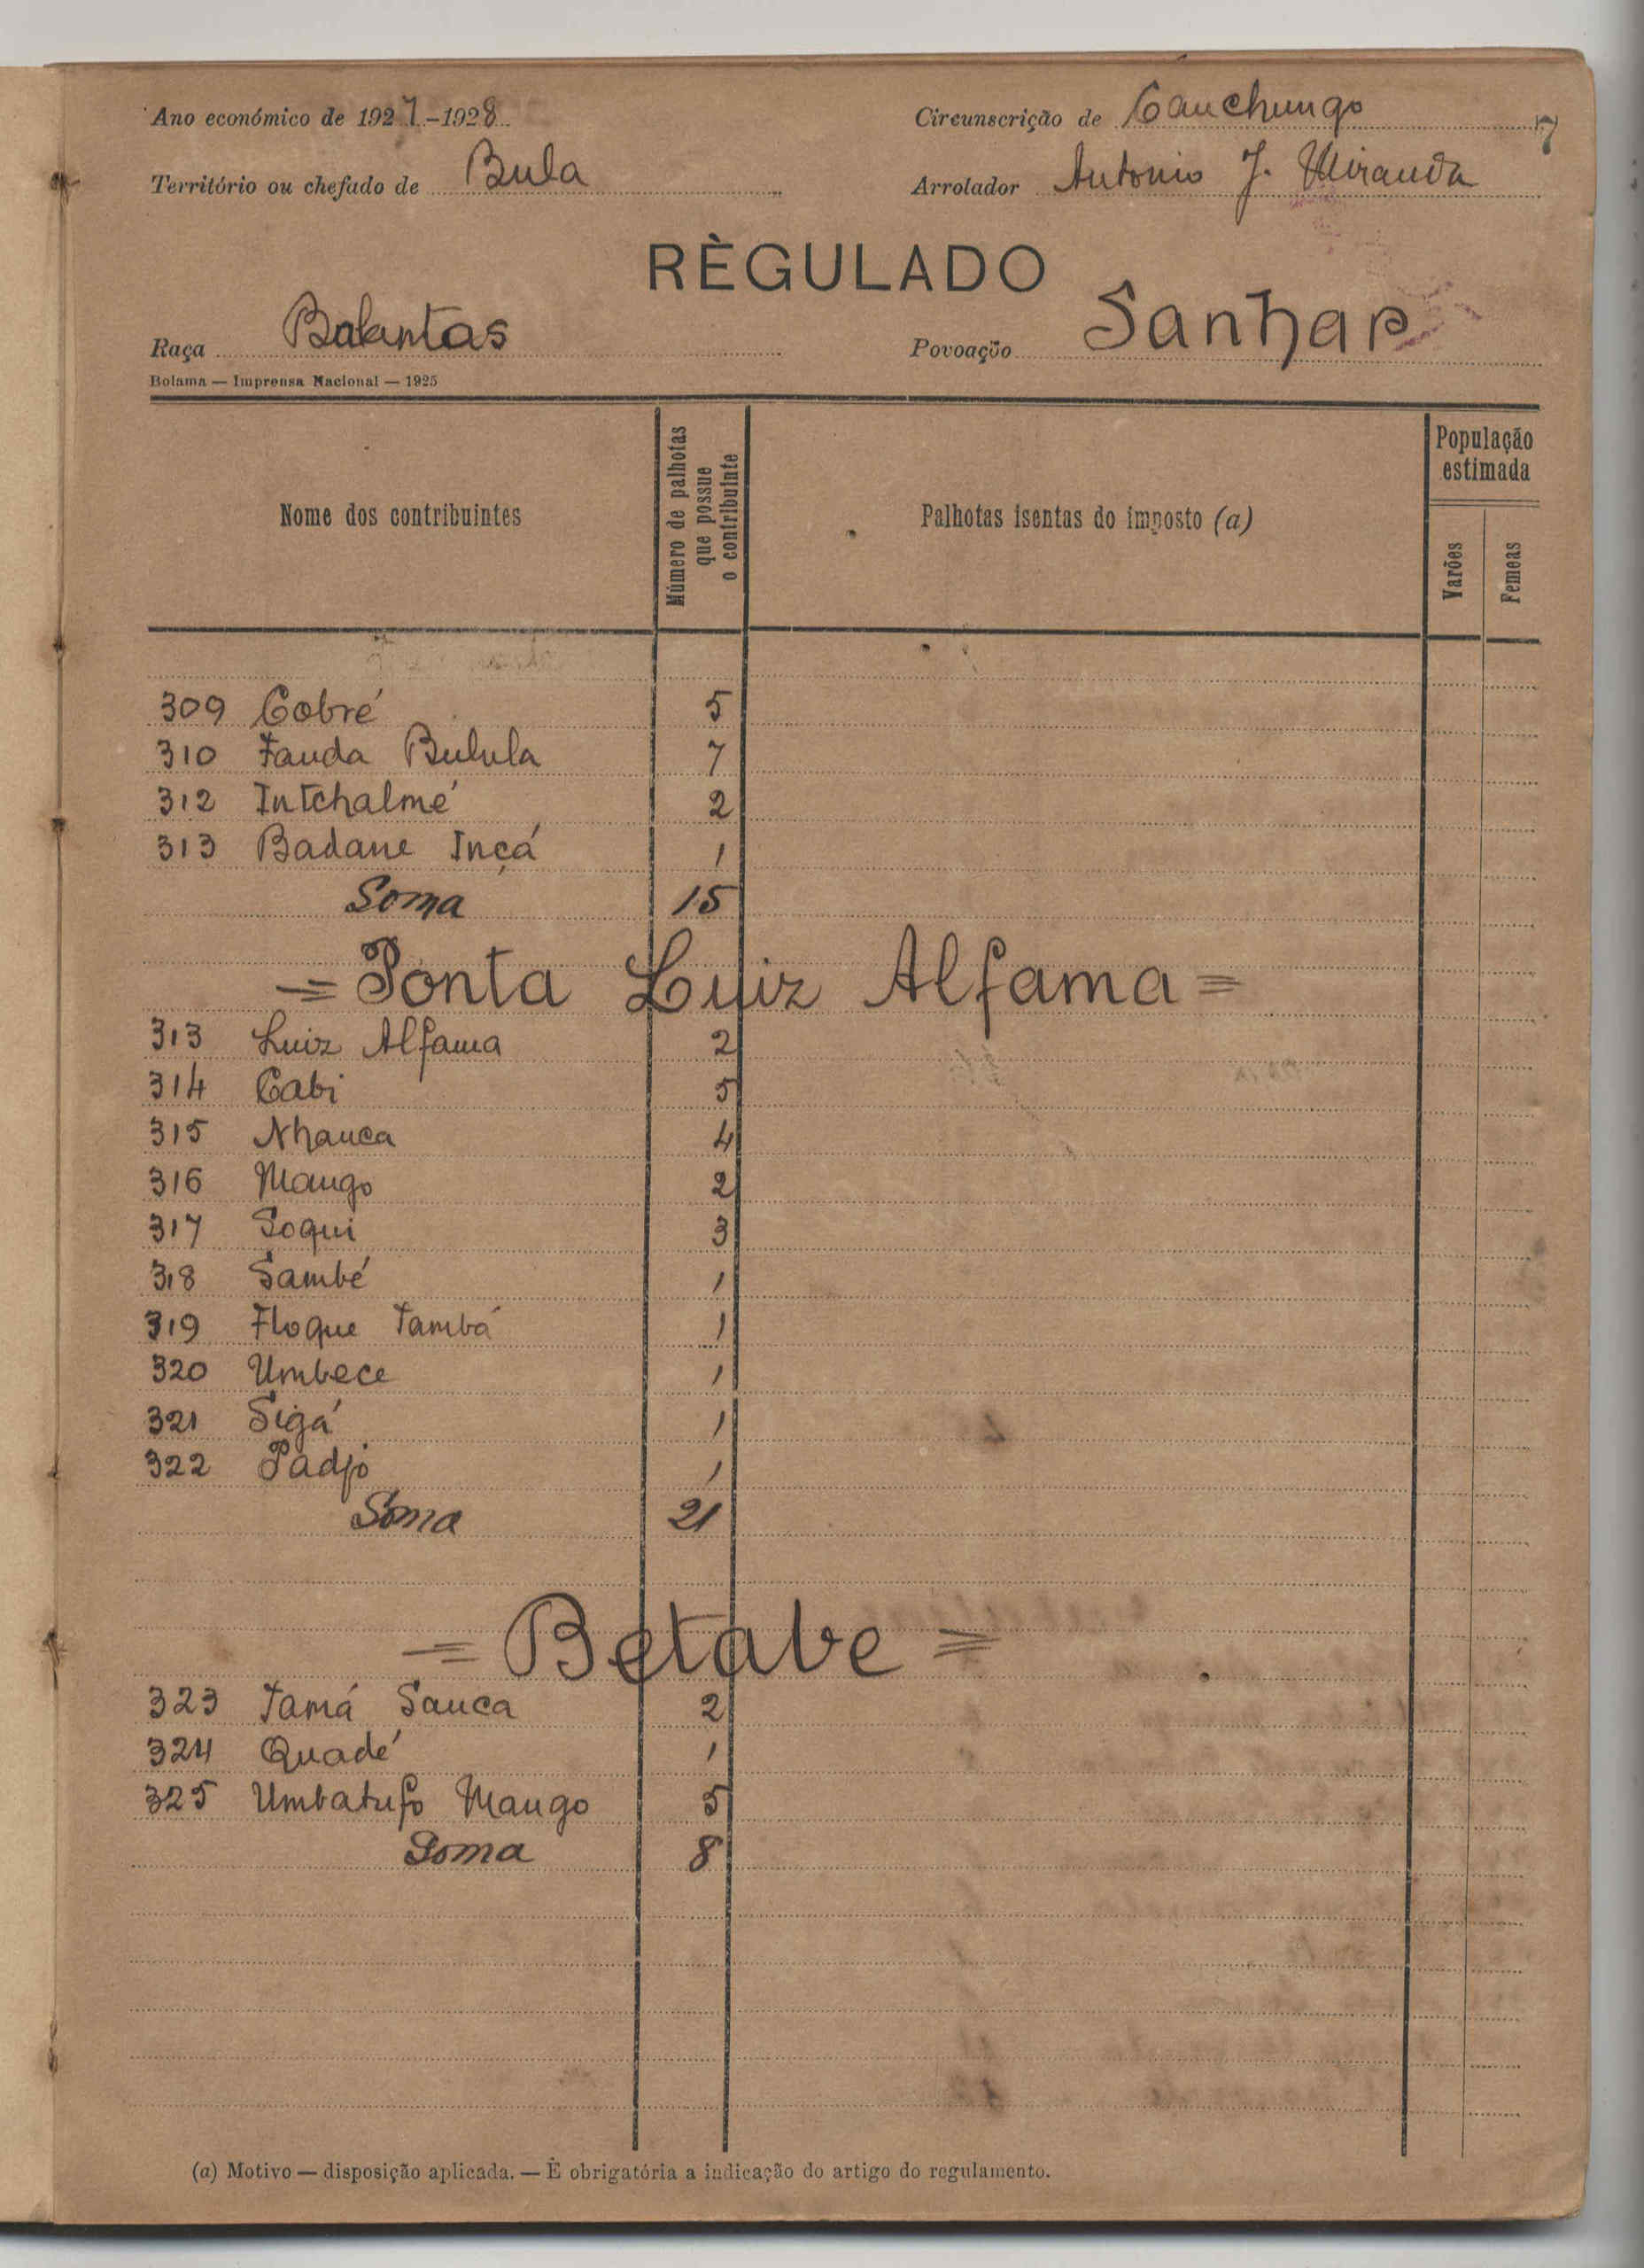 Ano económico de 1927-1928 Circunscrição de Canchungo 7
Território ou chefado de Bula Arrolador Antonio J. Miranda
RÈGULADO
Raça Balantas Povoação Sanhar
Bolama — Imprensa Nacional — 1925
Nome dos contribuintes Número de palhotas que possue o contribuinte Palhotas isentas do imposto (a) População estimada
Varões Femeas
309 Cobré 5
310 Fanda Bulula 7
312 Intchalmé 2
313 Badane Inçá 1
Soma 15
= Ponta Luiz Alfama =
313 Luiz Alfama 2
314 Cabi 5
315 Nhanca 4
316 Mango 2
317 Soqui 3
318 Sambé 1
319 Floque Tambá 1
320 Umbece 1
321 Sigá 1
322 Padjo 1
Soma 21
= Betabe =
323 Tamá Sanca 2
324 Quadé 1
325 Umbatufo Mango 5
Soma 8
(a) Motivo — disposição aplicada. — È obrigatória a indicação do artigo do regulamento.